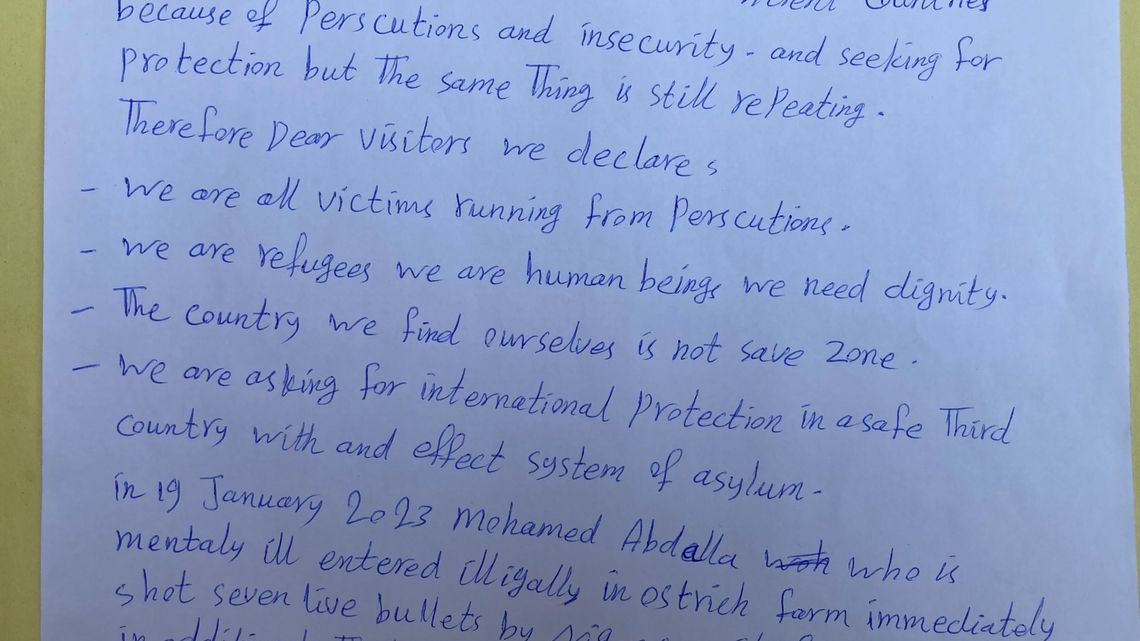 because of Perscutions and insecurity - and seeking for
protection but The same Thing is still repeating.
Therefore Dear visitors we declare s
- we are all victims running from Perscutions.
- we are refugees we are human beings we need dignity.
- The country we find ourselves is not save zone.
- we are asking for international Protection in a safe Third
country with and effect system of asylum -
in 19 January 2023 Mohamed Abdalla who is
mentaly ill entered illigally in ostrich farm immediately
shot seven live bullets by